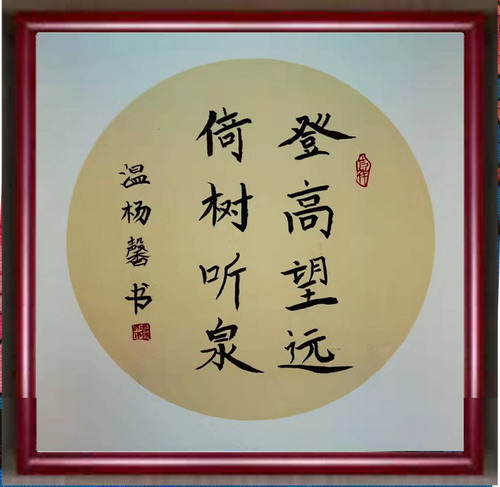 登高望远
倚树听泉
温杨馨书